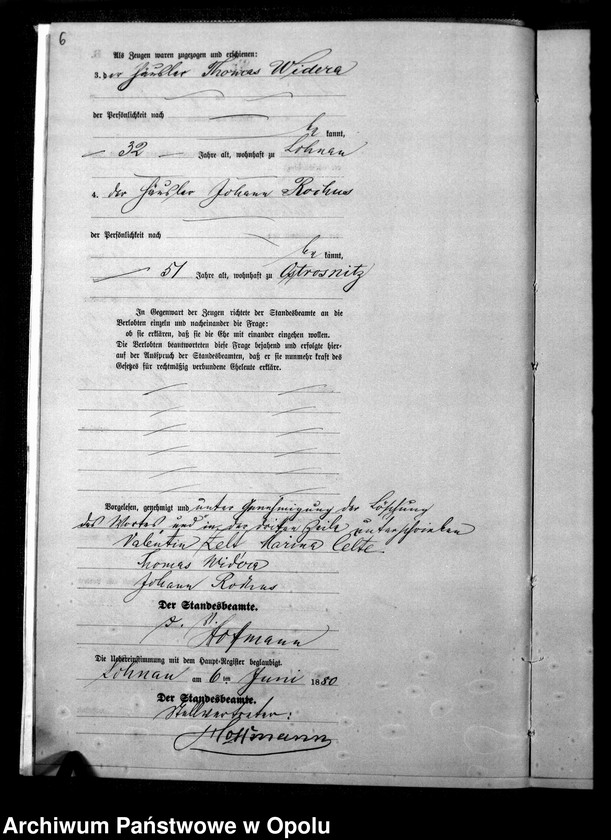 6
Als Zeugen waren zugezogen und erschienen:
3. der Häusler Thomas Widera
der Persönlichkeit nach
kannt,
32 Jahre alt, wohnhaft zu Lohnau
4. der Häusler Johann Rochus
der Persönlichkeit nach
kannt,
51 Jahre alt, wohnhaft zu Ostrosnitz
In Gegenwart der Zeugen richtete der Standesbeamte an die
Verlobten einzeln und nacheinander die Frage:
ob sie erklären, daß sie die Ehe mit einander eingehen wollen.
Die Verlobten beantworteten diese Frage bejahend und erfolgte hier-
auf der Ausspruch der Standesbeamten, daß er sie nunmehr kraft des
Gesetzes für rechtmäßig verbundene Eheleute erkläre.
Vorgelesen, genehmigt und unter Genehmigung der Löschung
des Wortes und in der dritten Zeile unterschrieben
Valentin Zelt Marina Celte
Thomas Widera
Johann Rochus
Der Standesbeamte.
Hofmann
Die Uebereinstimmung mit dem Haupt-Register beglaubigt.
Lohnau am 6 ten Juni 1880
Der Standesbeamte.
Stellvertreter:
Hoffmann
Archiwum Państwowe w Opolu